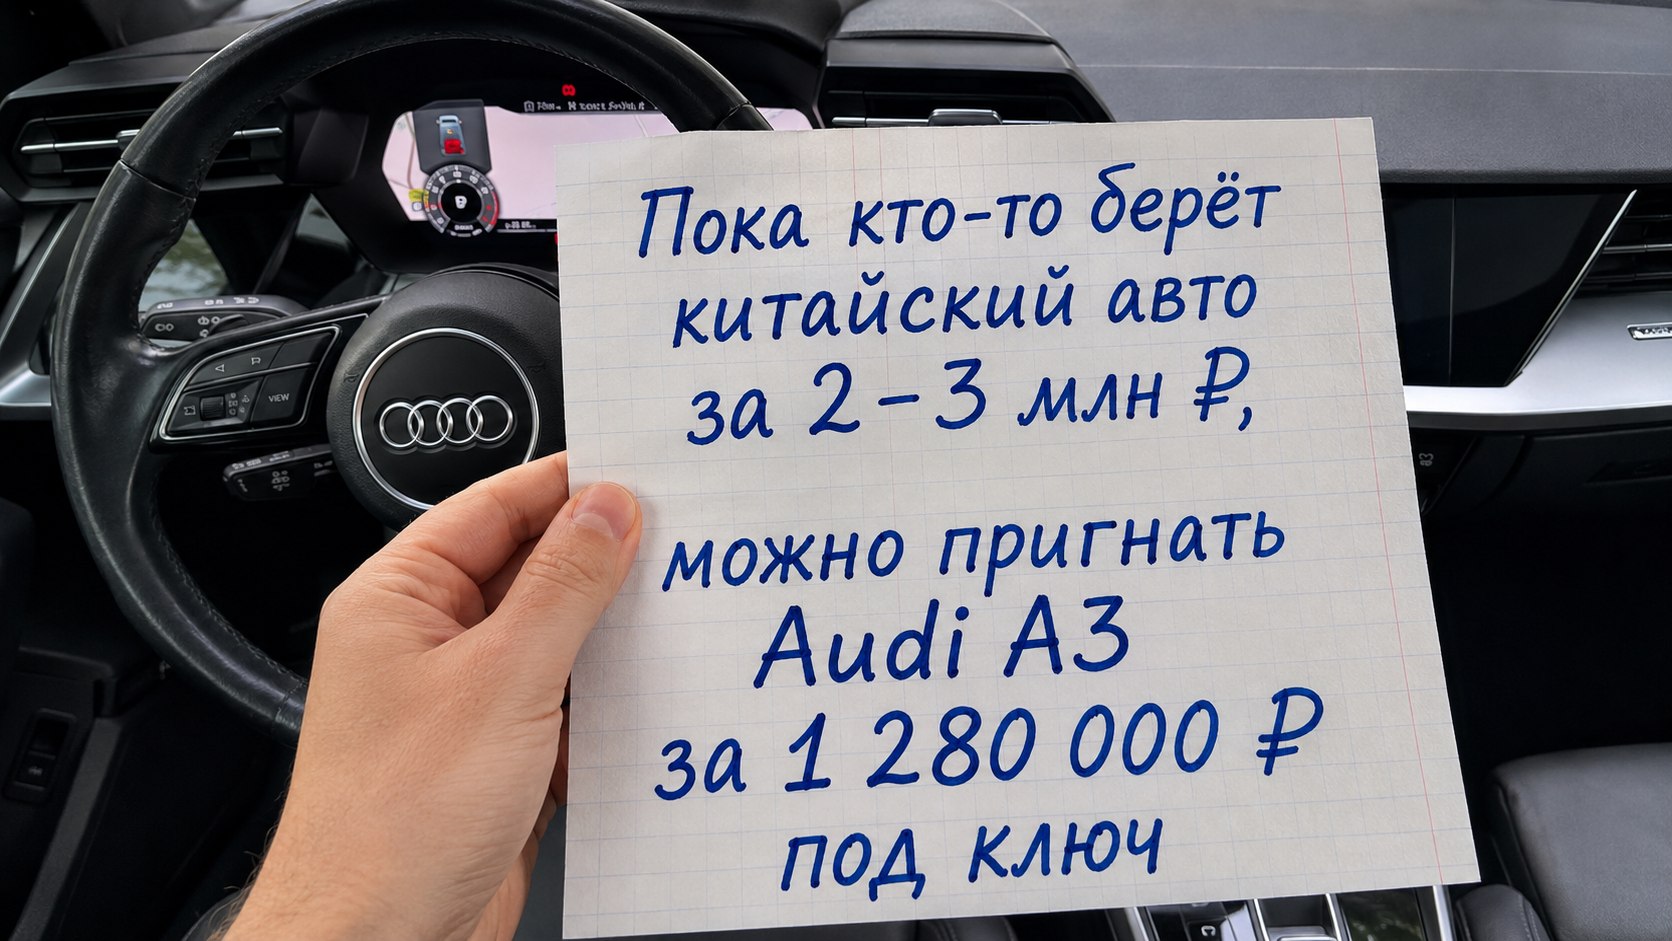 Пока кто-то берёт
китайский авто
за 2-3 млн ₽,
можно пригнать
Audi A3
за 1 280 000 ₽
под ключ
VIEW